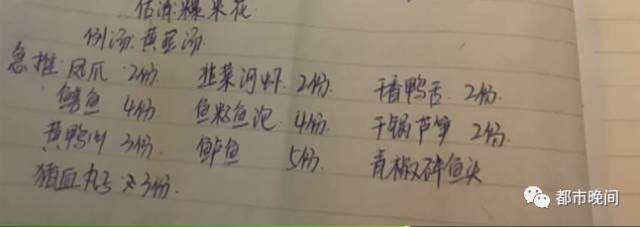 估清:爆米花
例汤:黄豆汤.
急推:凤爪 2份 韭菜河虾 2份. 干香鸭舌. 2份.
鳝鱼 4份 鱼籽鱼泡 4份. 干锅芦笋 2份.
黄鸭叫 3份. 鲈鱼 5份 青椒碎鱼头
猪血丸子 3份.
都市晚间